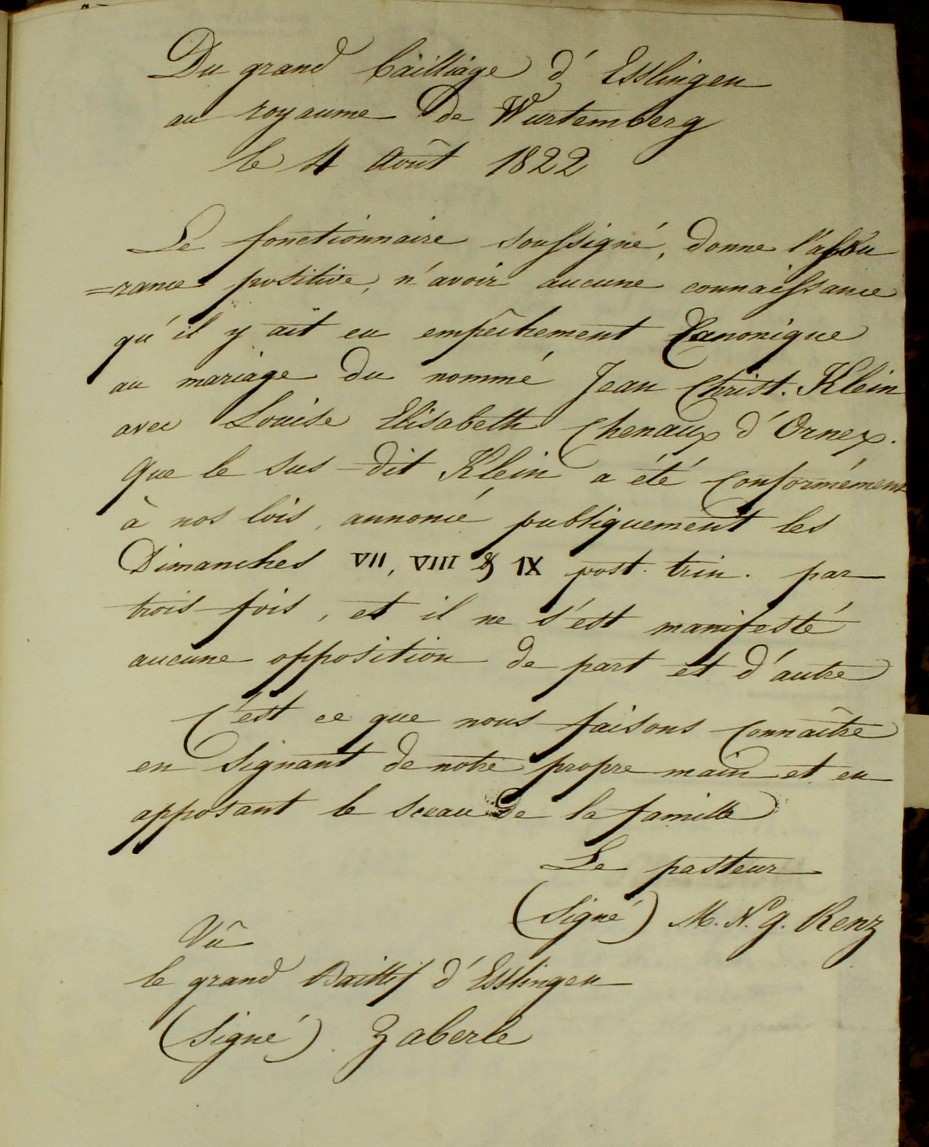 Du grand bailliage d'Esslingen
au royaume de Wurtemberg
le 4 Août 1822
Le fonctionnaire soussigné, donne l'assu
=rance positive, n'avoir aucune connaissance
qu'il y ait eu empêchement Canonique
au mariage du nommé Jean Christ. Klein
avec Louise Elisabeth Chenaux d'Ornex.
que le sus-dit Klein a été conformément
à nos lois, annoncé publiquement les
Dimanches VII, VIII & IX post. trin. par
trois fois, et il ne s'est manifesté
aucune opposition de part et d'autre
C'est ce que nous faisons connaître
en signant de notre propre main et en
apposant le sceau de la famille
Le pasteur
(signé) M. N. g. Renz
Vû
le grand Baillif d'Esslingen
(signé) Zaberle